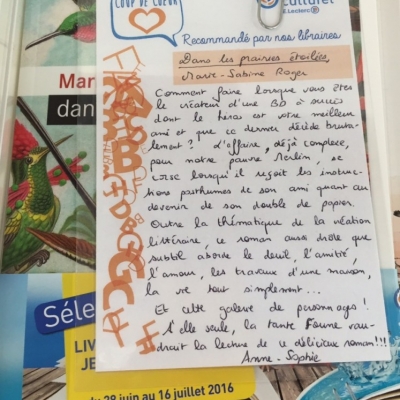 COUP DE COEUR
Culturel
E.Leclerc
Recommandé par nos libraires
Dans les prairies étoilées,
Marie-Sabine Roger
Comment faire lorsque vous êtes
le créateur d'une BD à succès
dont le héros est votre meilleur
ami et que ce dernier décède bruta-
lement ? L'affaire, déjà complexe,
pour notre pauvre Merlin, se
corse lorsqu'il reçoit les instruc-
tions posthumes de son ami quant au
devenir de son double de papier.
Outre la thématique de la création
littéraire, ce roman aussi drôle que
subtil aborde le deuil, l'amitié,
l'amour, les travaux d'une maison,
la vie tout simplement...
Et cette galerie de personnages !
A elle seule, la tante Foune vau-
drait la lecture de ce délicieux roman!!!
Anne-Sophie
Mar
dan
Séle
LIV
JE
du 28 juin au 16 juillet 2016